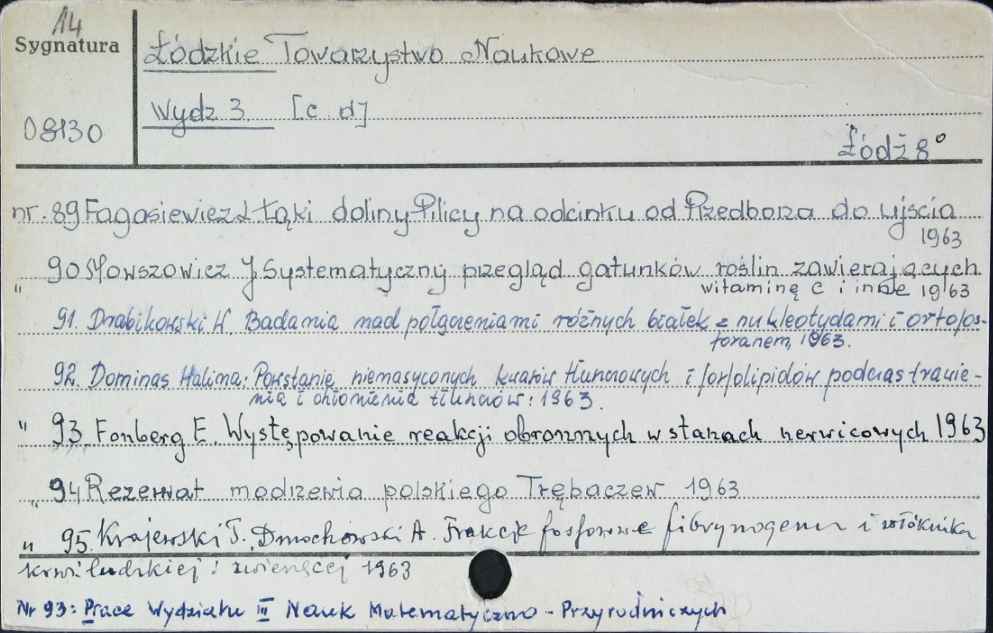 14
Sygnatura
Łódzkie Towarzystwo Naukowe
Wydz 3 [c d]
08130
Łódź 8°
nr. 89 Fagasiewicz L Łąki doliny Pilicy na odcinku od Przedborza do ujścia
1963
" 90 Mowszowicz J Systematyczny przegląd gatunków roślin zawierających
witaminę C i inne 1963
91. Drabikowski W. Badania nad połączeniami różnych białek z nukleotydami i ortofos-
foranem, 1963.
92. Dominas Halina: Powstanie niemasyconych kwasów tłuszczowych i fosfolipidów podczas trawie-
nia i chłonienia tłuszczów: 1963.
" 93. Fonberg E. Występowanie reakcji obronnych w stanach nerwicowych 1963
" 94 Rezerwat modrzewia polskiego Trębaczew 1963
" 95. Krajewski T., Dmochowski A. Frakcje fosforowe fibrynogenu i włóknika
krwi ludzkiej i zwierzęcej 1963
Nr 93: Prace Wydziału III Nauk Matematyczno - Przyrodniczych